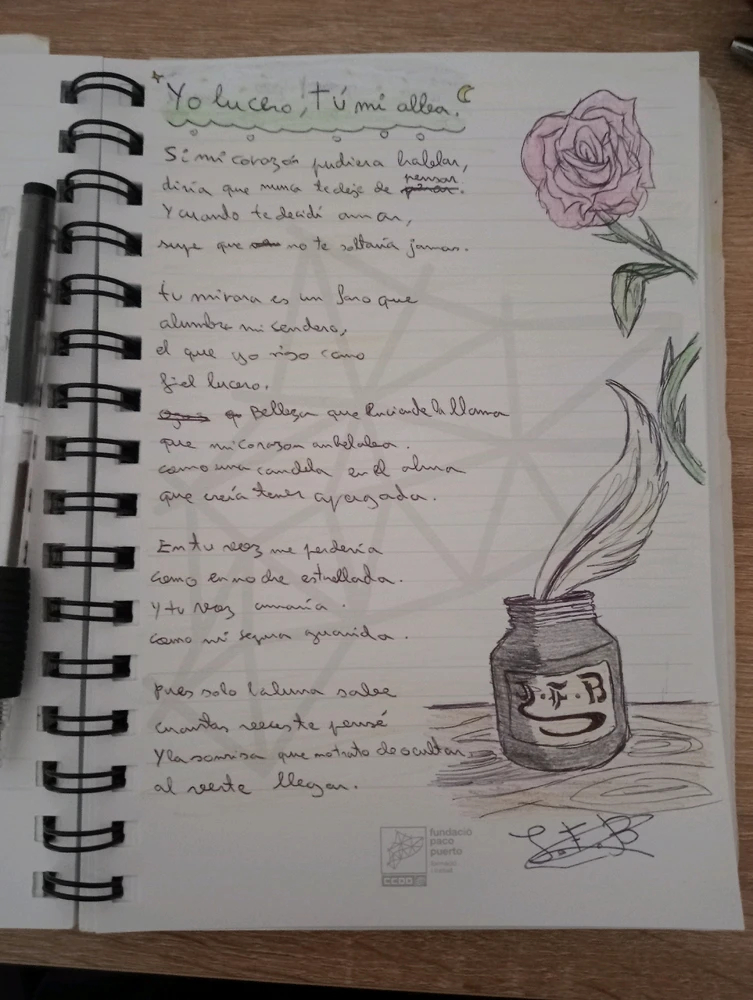 Yo lucero, tú mi alba.
Si mi corazón pudiera hablar,
diria que nunca te deje de pensar.
Y cuando te decidí amar,
supe que no te soltaria jamas.
tu mirara es un faro que
alumbra mi sendero,
el que yo sigo como
fiel lucero.
Belleza que enciende la llama
que mi corazon anhelaba.
como una candela en el alma
que creía tener apagada.
En tu voz me perderia
como en noche estrellada.
y tu voz amaria
como mi segura guarida.
pues solo la luna sabe
cuantas veces te pensé
Y la sonrisa que trato de ocultar
al verte llegar.
J.F.B
fundació
paco
puerto
CCOO